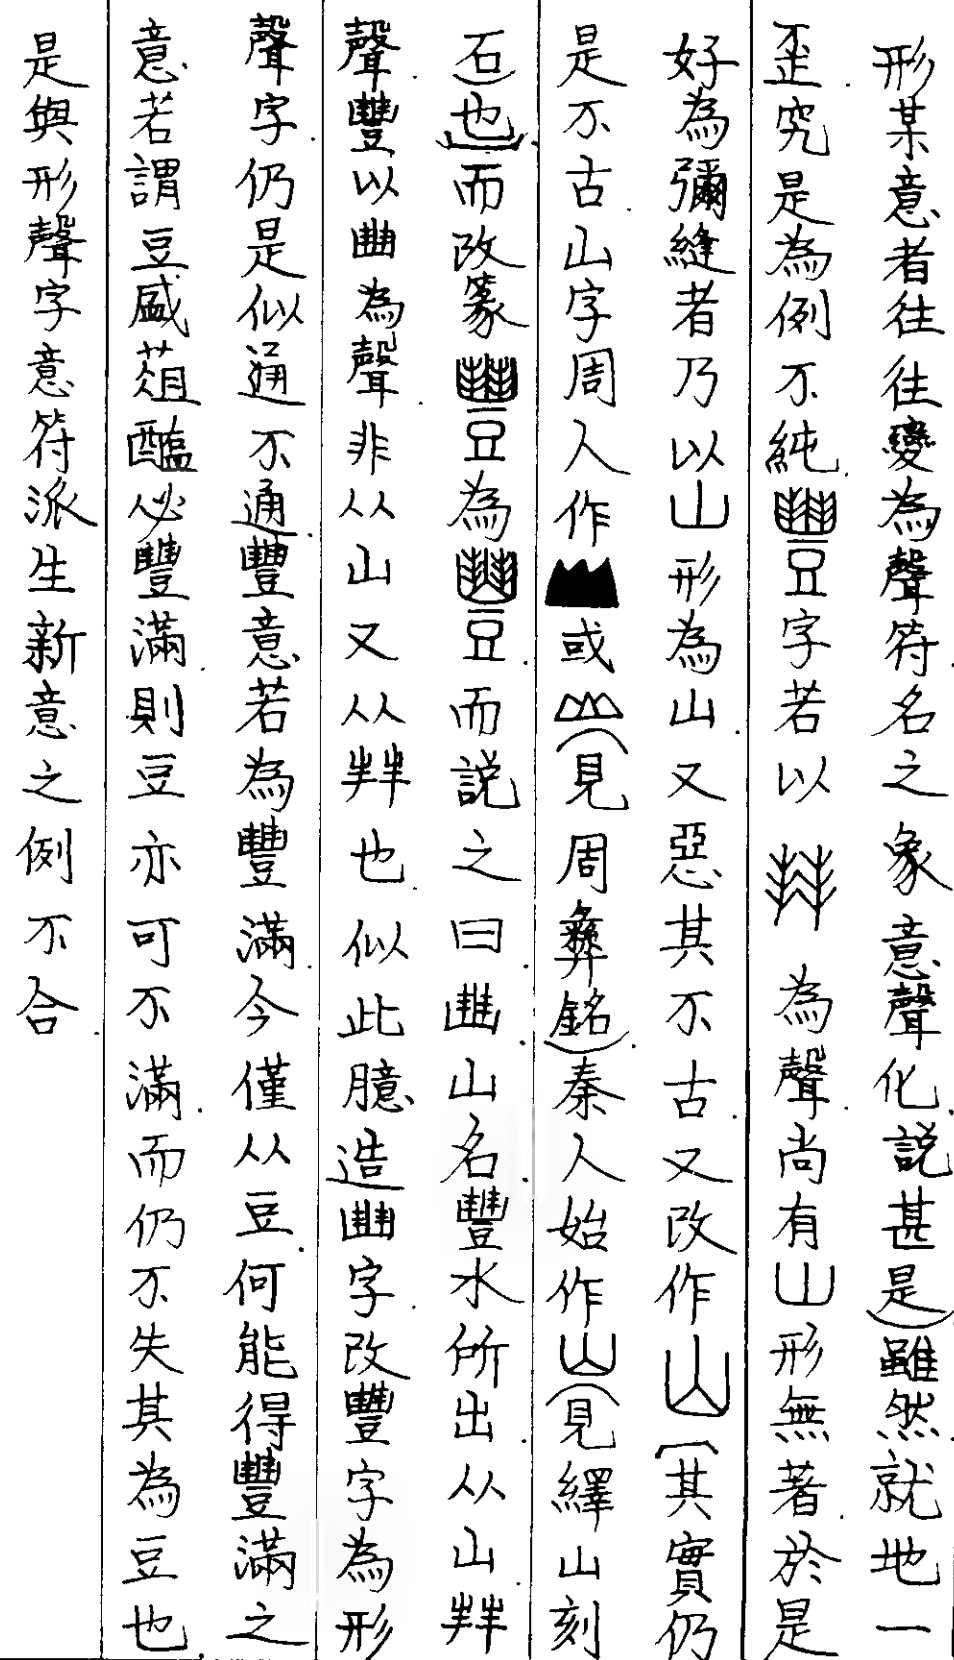 形某意者往往變為聲符名之象意聲化説甚是)雖然就地一
歪究是為例不純豐字若以丰丰為聲尚有凵形無著於是
好為彌縫者乃以山形為山又惡其不古又改作山[其實仍
是不古山字周人作山或山(見周彝銘)秦人始作山(見繹山刻
石)也]而改篆豐為豐而説之曰豳山名豐水所出从山丰丰
聲豐以豳為聲非从山又从丰丰也似此臆造豳字改豐字為形
聲字仍是似通不通豐意若為豐滿今僅从豆何能得豐滿之
意若謂豆盛葅醢必豐滿則豆亦可不滿而仍不失其為豆也
是與形聲字意符派生新意之例不合